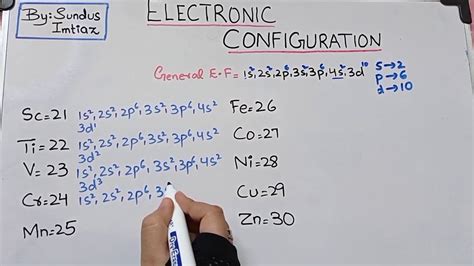 By: Sundus
Imtiaz
ELECTRONIC
CONFIGURATION
General E.F= 1s², 2s², 2p⁶, 3s², 3p⁶, 4s², 3d¹⁰
S→2
P→6
d→10
Sc=21 1s², 2s², 2p⁶, 3s², 3p⁶, 4s²
3d¹
Ti=22 1s², 2s², 2p⁶, 3s², 3p⁶, 4s²
3d²
V=23 1s², 2s², 2p⁶, 3s², 3p⁶, 4s²
3d³
Cr=24 1s², 2s², 2p⁶, 3s
Mn=25
Fe=26
Co=27
Ni=28
Cu=29
Zn=30